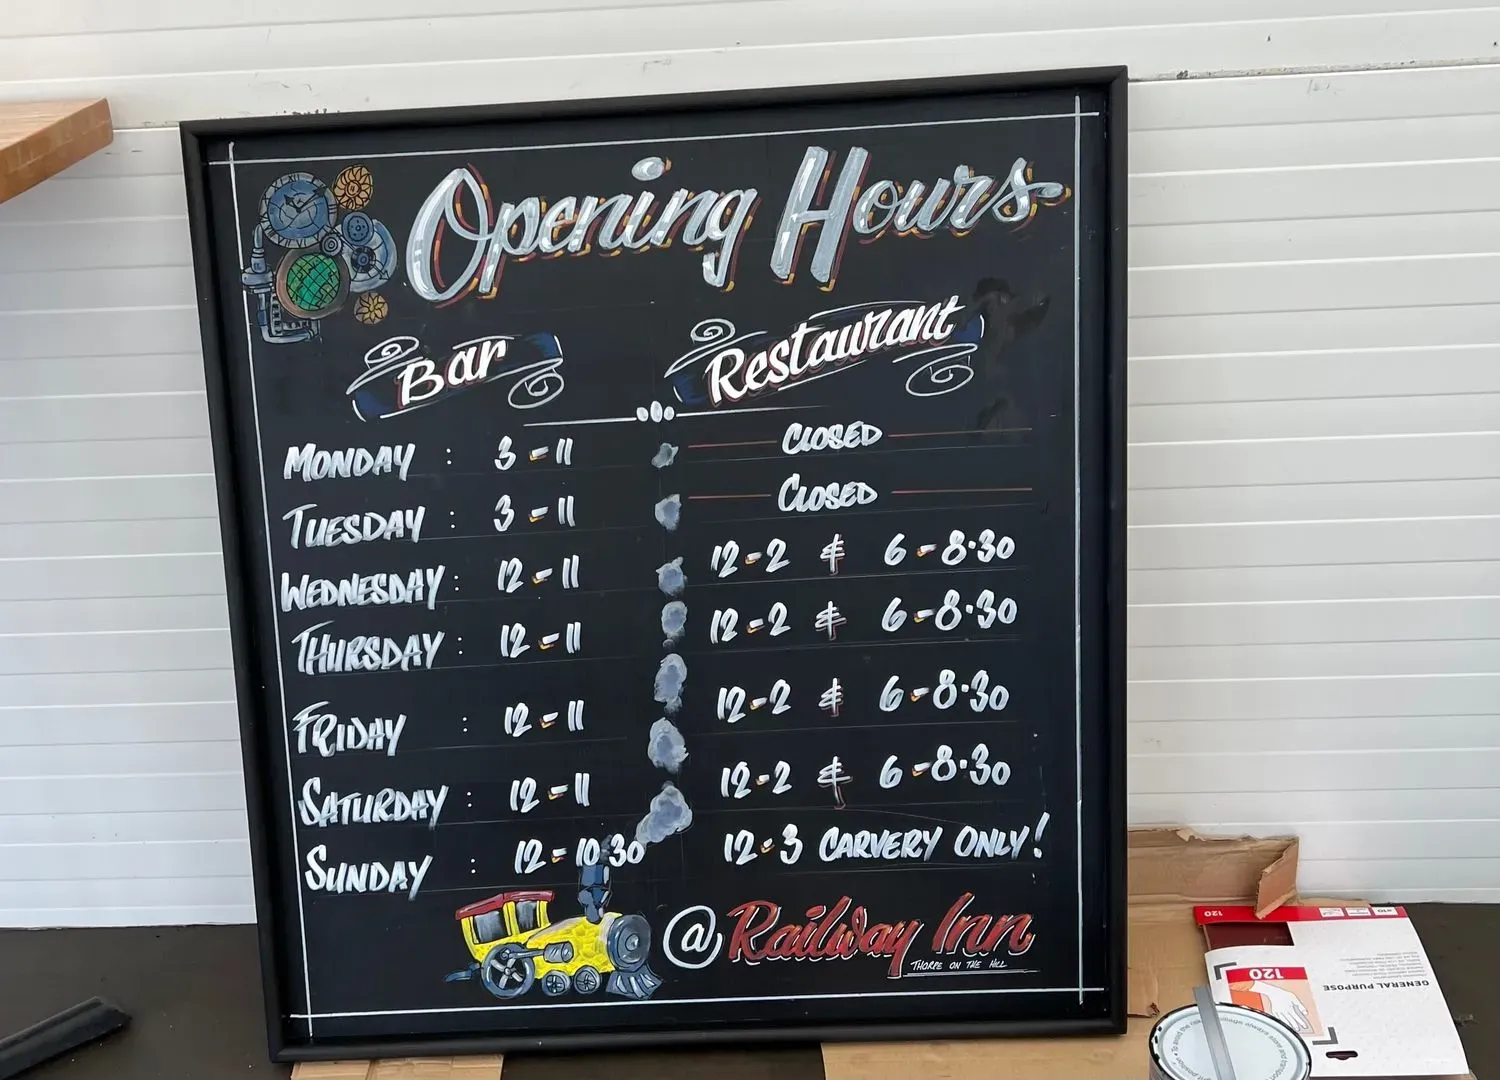 Opening Hours
Bar Restaurant
MONDAY : 3 - 11 CLOSED
TUESDAY : 3 - 11 CLOSED
WEDNESDAY : 12 - 11 12 - 2 & 6 - 8·30
THURSDAY : 12 - 11 12 - 2 & 6 - 8·30
FRIDAY : 12 - 11 12 - 2 & 6 - 8·30
SATURDAY : 12 - 11 12 - 2 & 6 - 8·30
SUNDAY : 12 - 10·30 12 - 3 CARVERY ONLY!
@ Railway Inn
THORPE ON THE HILL
120
120
GENERAL PURPOSE